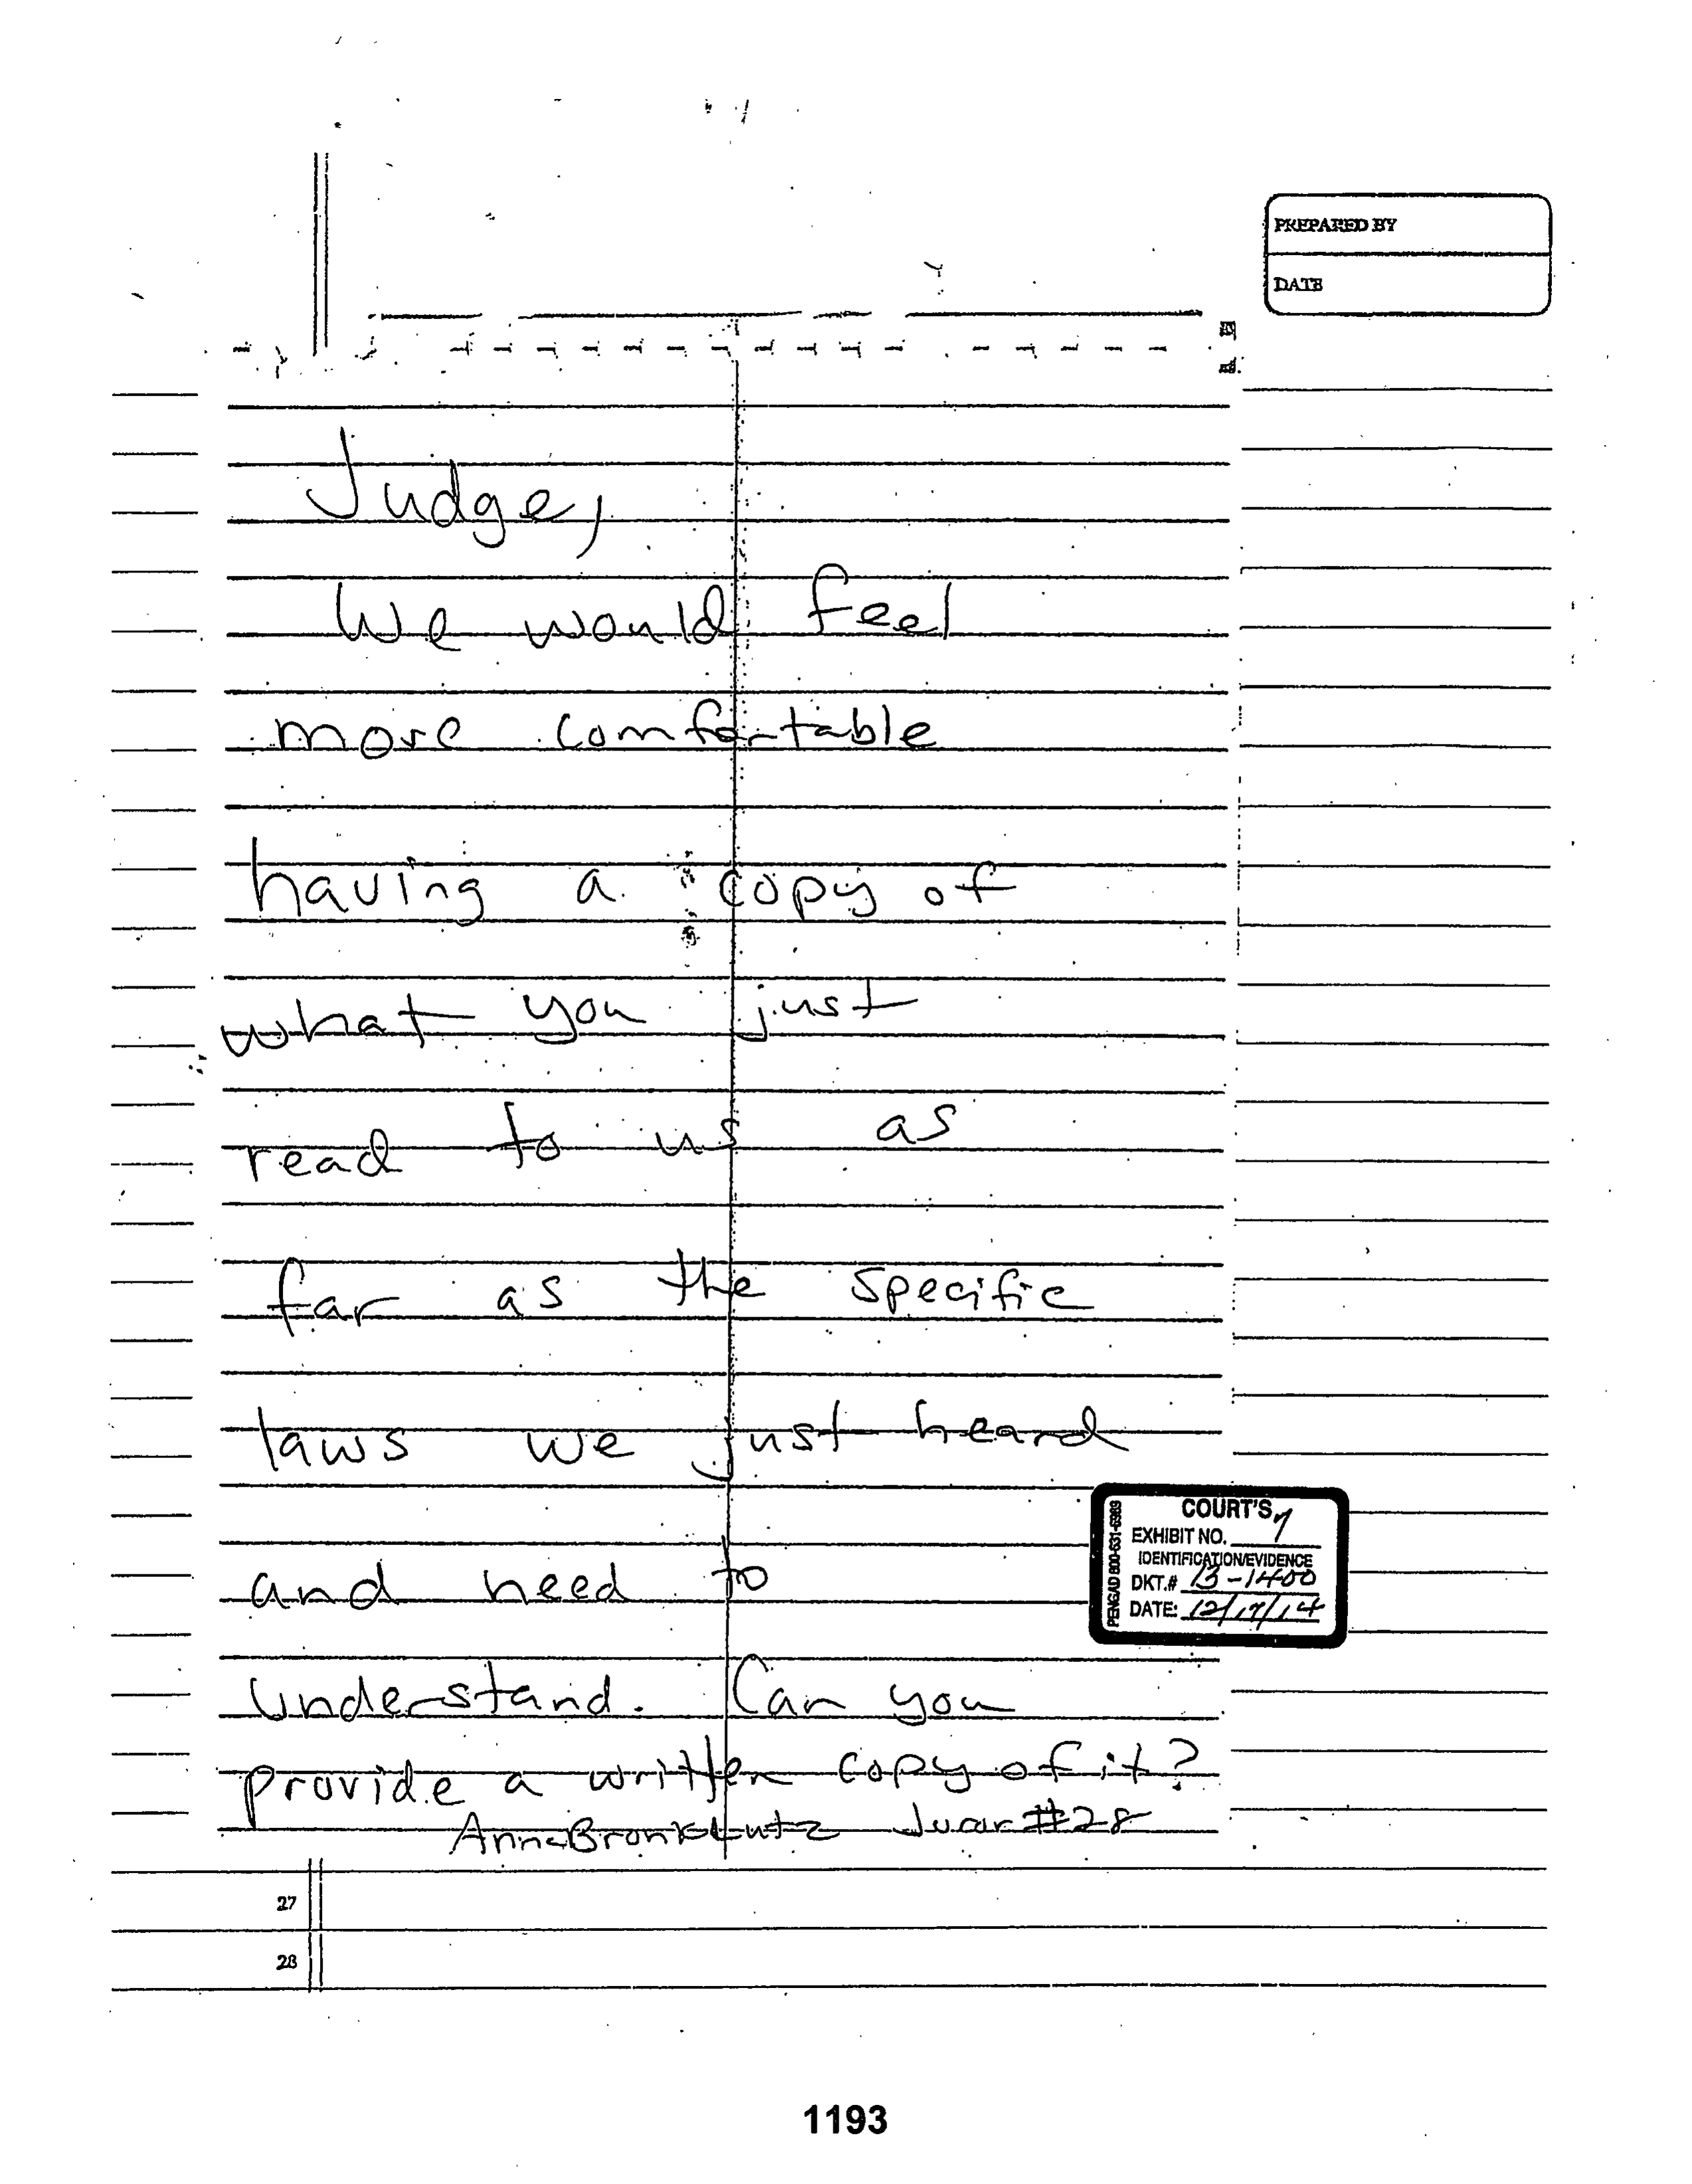 PREPARED BY
DATE
Judge,
We would feel
more comfortable
having a copy of
what you just
read to us as
far as the specific
laws we just heard
and need to
understand. Can you
provide a written copy of it?
Anna Bronk Lutz Juror #28
PENGAD 800-631-6989
COURT'S
EXHIBIT NO. 7
IDENTIFICATION/EVIDENCE
DKT.# 13-1400
DATE: 12/17/14
27
28
1193